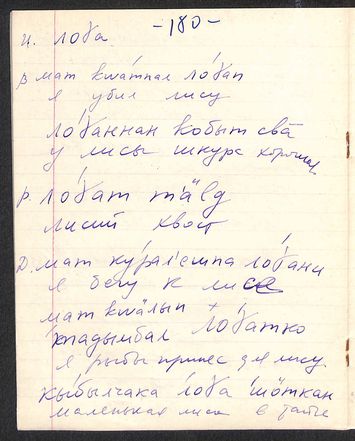 -180-
И. лоɣа
В. мат кwа́тпал ло́ɣап
я убил лису
ло́ɣаннан кобыт сва̄
у лисы шкура хорошая
Р. ло́ɣат тӓlд
лисий хвост
Д. мат ку́рал'еwпа ло́ɣани
я бегу к лисе
мат кwа̄лып +
тадымбал ло́ɣатко
я рыбы принес для лису
кы́былчака ло́ɣа шо̄ткан
маленькая лиса в тайге